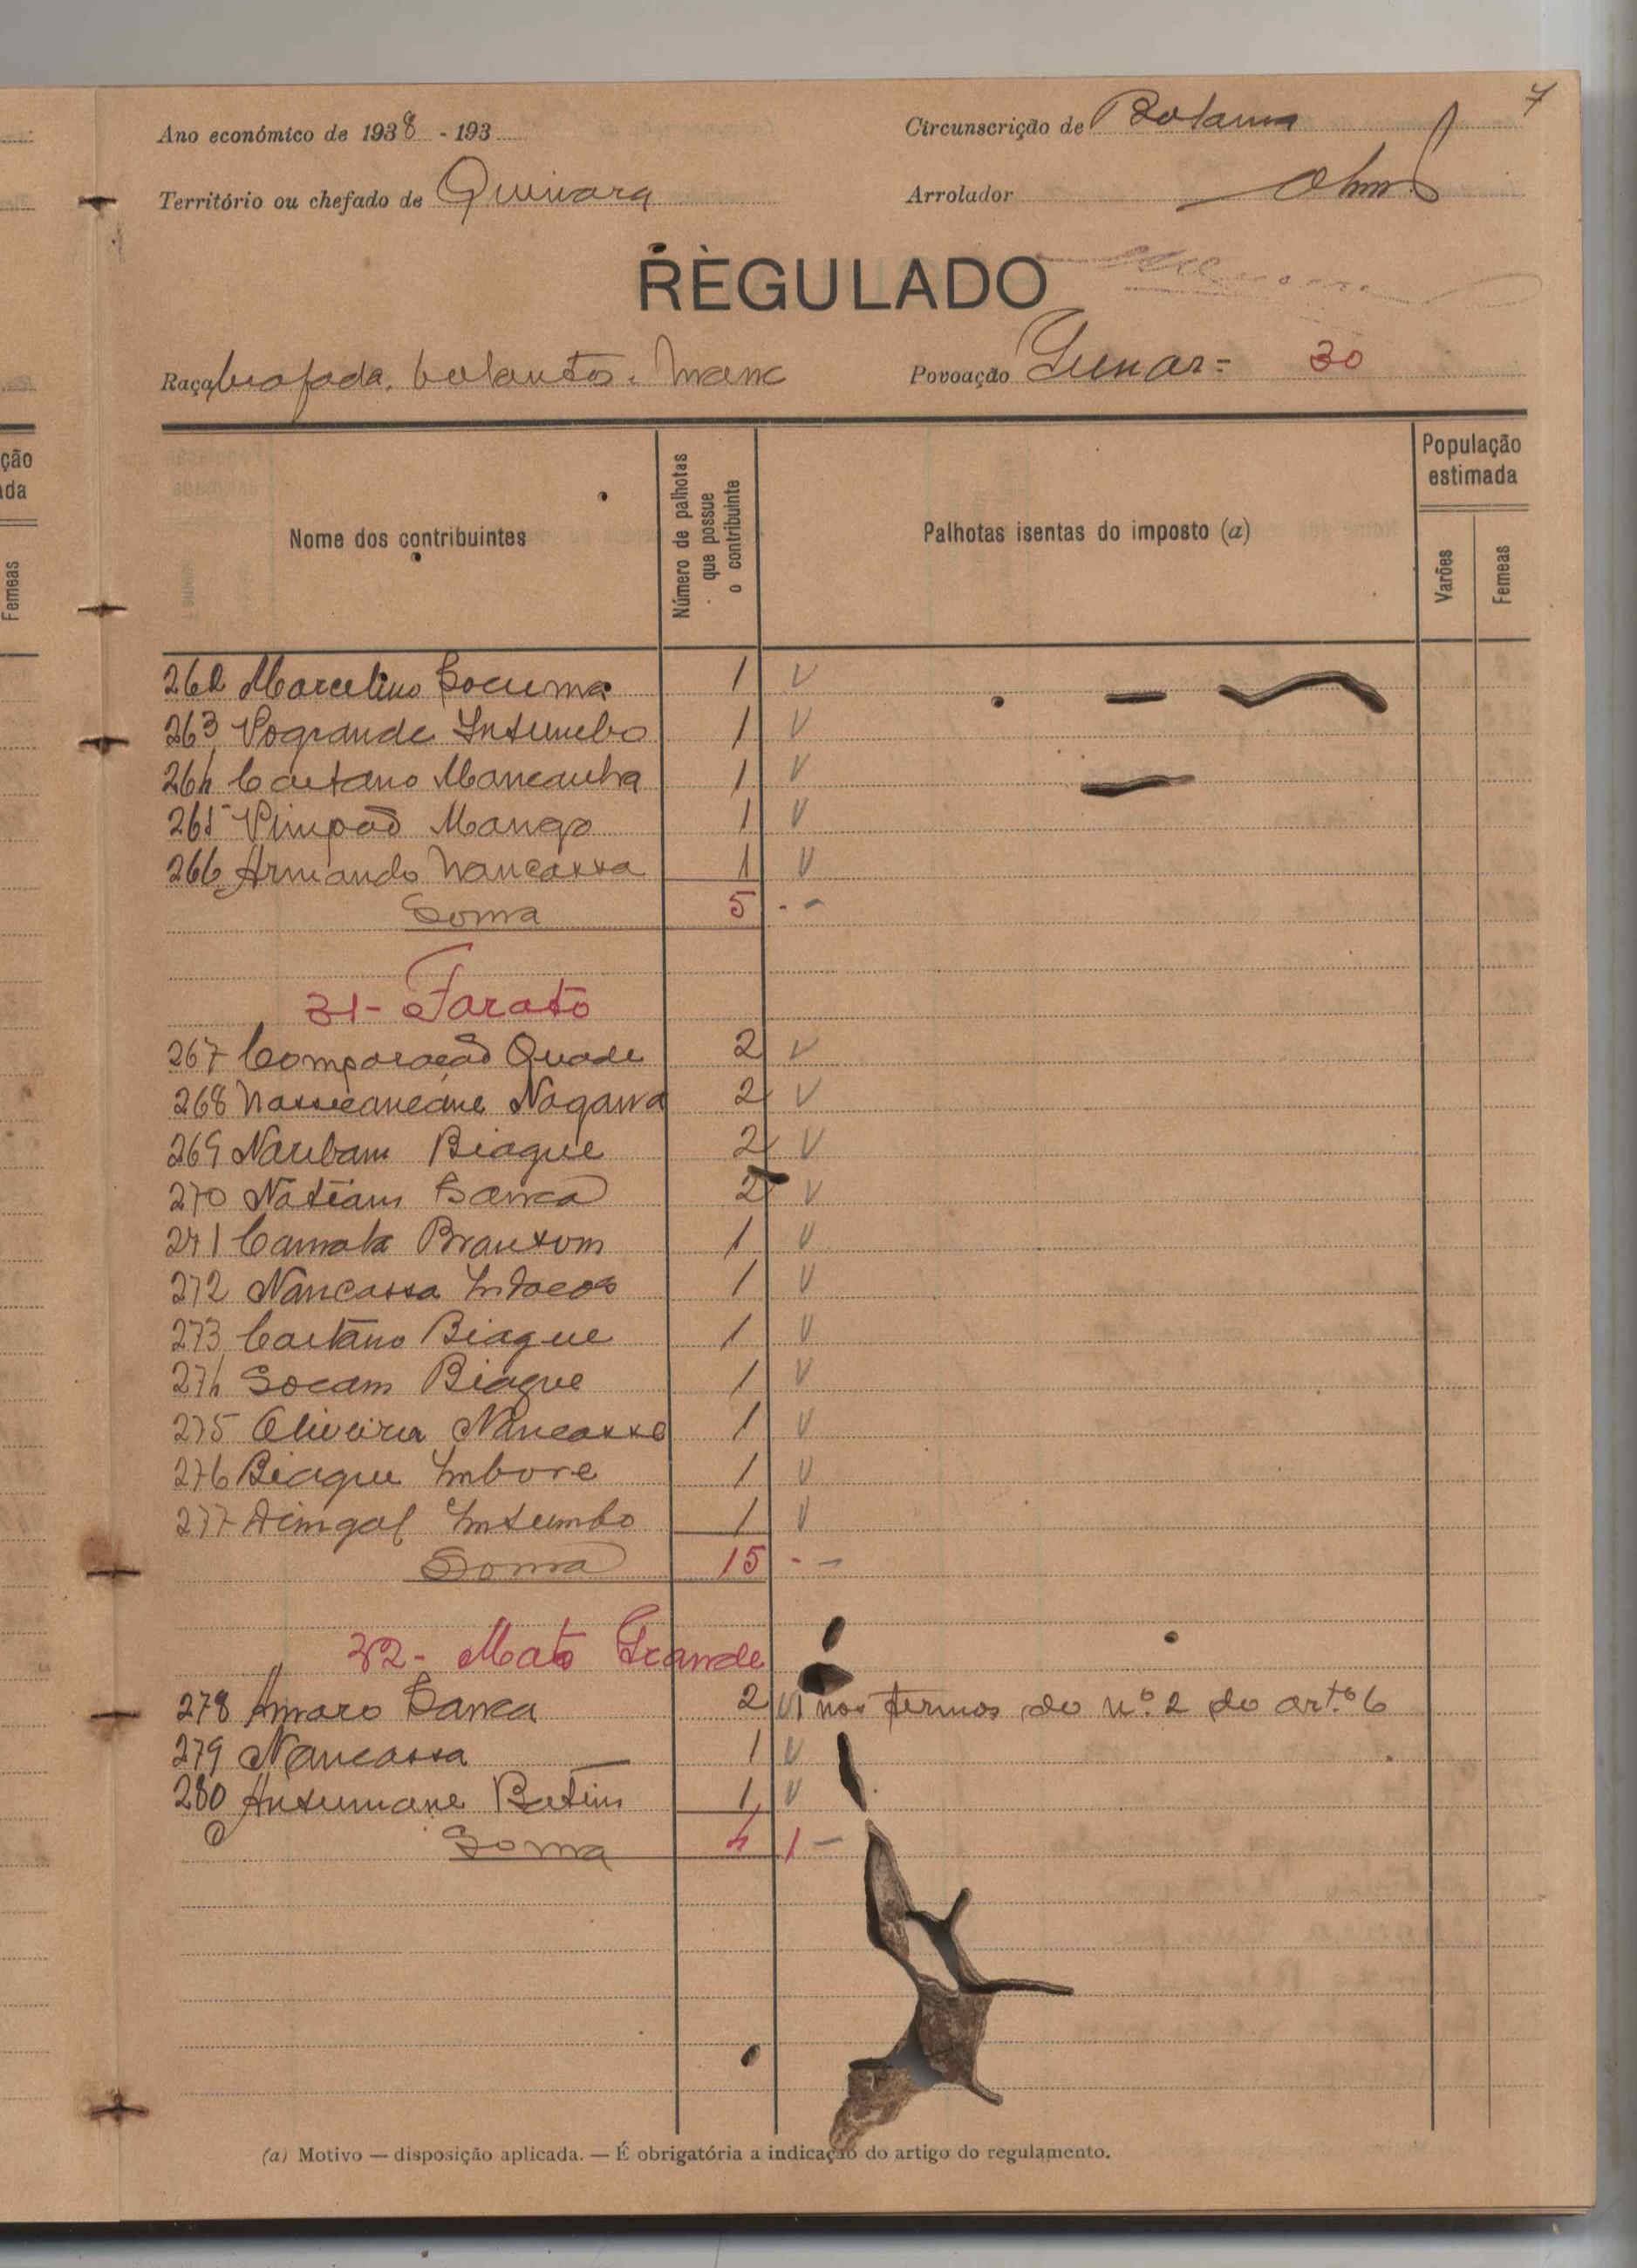 7
Ano económico de 1938 - 193
Circunscrição de Bolama
Território ou chefado de Quinara
Arrolador
REGULADO
Raça biafada, balantos.
Povoação Gunar = 30
ção
ada
Femeas
Nome dos contribuintes
Número de palhotas que possue o contribuinte
Palhotas isentas do imposto (a)
População estimada
Varões
Femeas
262 Marcelino Socuma 1 V
263 Vogrande Intumbo 1 V
264 Caetano Mancanha 1 V
265 Pimpão Mango 1 V
266 Armando Nancassa 1 V
Soma 5 - -
31- Farato
267 Comparação Quade 2 V
268 Nagana 2 V
269 Naubam Biague 2 V
270 Natiam Sanca 2 V
271 Camala Brantom 1 V
272 Nancassa 1 V
273 Caetano Biague 1 V
274 Socam Biague 1 V
275 Oliveira Nancassa 1 V
276 Biague Imbore 1 V
277 Dimgal Intumbo 1 V
Soma 15 - -
32- Mato Grande
278 Amaro Sanca 2 V 1 nos termos do nº 2 do artº 6
279 Nancassa 1 V
280 Ansumane Batim 1 V
Soma 4 1 -
(a) Motivo — disposição aplicada. — É obrigatória a indicação do artigo do regulamento.